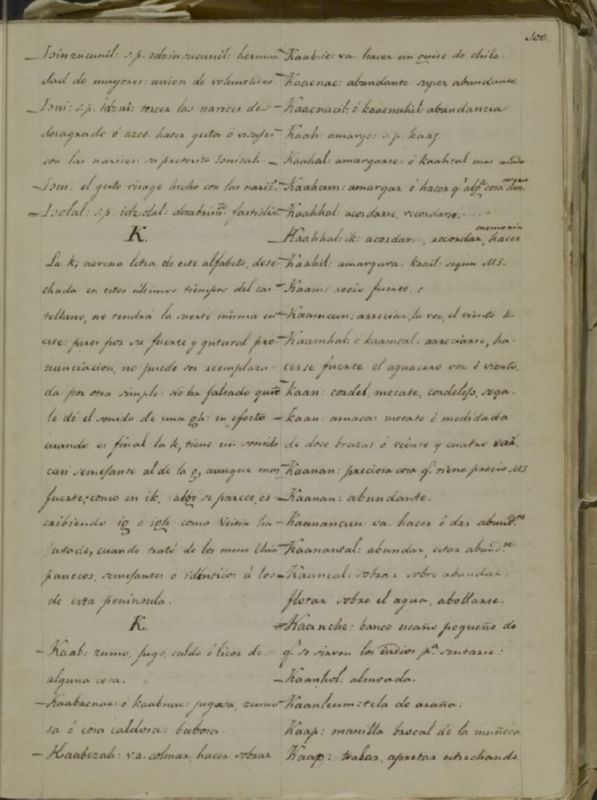 100.
Idzinzucunil: s.p. idzin sucunil: herman
dad de mayores: union de voluntades
Idzni: s.p. idzni: torcer las narices de
desagrado ó asco. hacer gestos ó visajes
con las narices: su preterito
Idzni: el gesto visage hecho con las nariz.
s.p. fastidio
K.
La k, novena letra de este alfabeto, dese
chada en estos ultimos tiempos del cas
tellano, no tendrá la suerte misma en
este: pues por su fuerte y gutural pro
nunciacion, no puede ser reemplaza
da por otra simple: no ha faltado quien
le dé el sonido de una qh: en efecto
cuando es final la k, tiene un sonido
casi semejante al de la g, aunque mas
fuerte; como en ik, algo se parece, es
cribiendo ig ó igh, como ha
cuando trató de los
semejantes o idénticos á los
de esta peninsula.
K.
Kaab: zumo, jugo, caldo ó licor de
alguna cosa.
Kaabacnac: ó kaabnac: jugosa, zumo
sa ó cosa caldosa: babosa.
Kaabezah: va. colmar, hacer sobrar
Kaabic: va. hacer un guiso de chile
Kaacnac: abundante super abundante.
Kaacnacil: ó kaacnahil: abundancia
Kaah: amargo: s.p. kaaj.
Kaahal: amargarse: ó kaahcal mas usado
Kaahcun: amargar ó hacer q.e alg.a cosa amargue
Kaahhal: acordarse, recordarse.
Kaahhal: ik: acordarse, recordar, hacer memoria
Kaahil: amargura. kaail: segun MS.
Kaam: recio fuerte.
Kaamcun: arreciar, la voz, el viento &.
Kaamhal: ó kaamtal. arreciarse, ha-
cerse fuerte el aguacero voz ó viento.
Kaan: cordel, mecate, cordelejo, soga.
kaan: amaca: mecate ó medida da
de doce brazas ó veinte y cuatro
Kaanan: preciosa cosa q.e tiene precio MS
Kaanan: abundante.
Kaanancun: va. hacer ó dar abund.te
Kaanantal: abundar, estar abund.te
Kaancal: sobrar sobre abundar.
flotar sobre el agua, abollarse.
Kaanche: banco escaño pequeño de
q.e se sirven los indios p.a sentarse:
Kaanhol. almoada.
Kaanleum: tela de araña:
Kaap: manilla brocal de la muñeca
Kaap: trabar, apretar estrechando